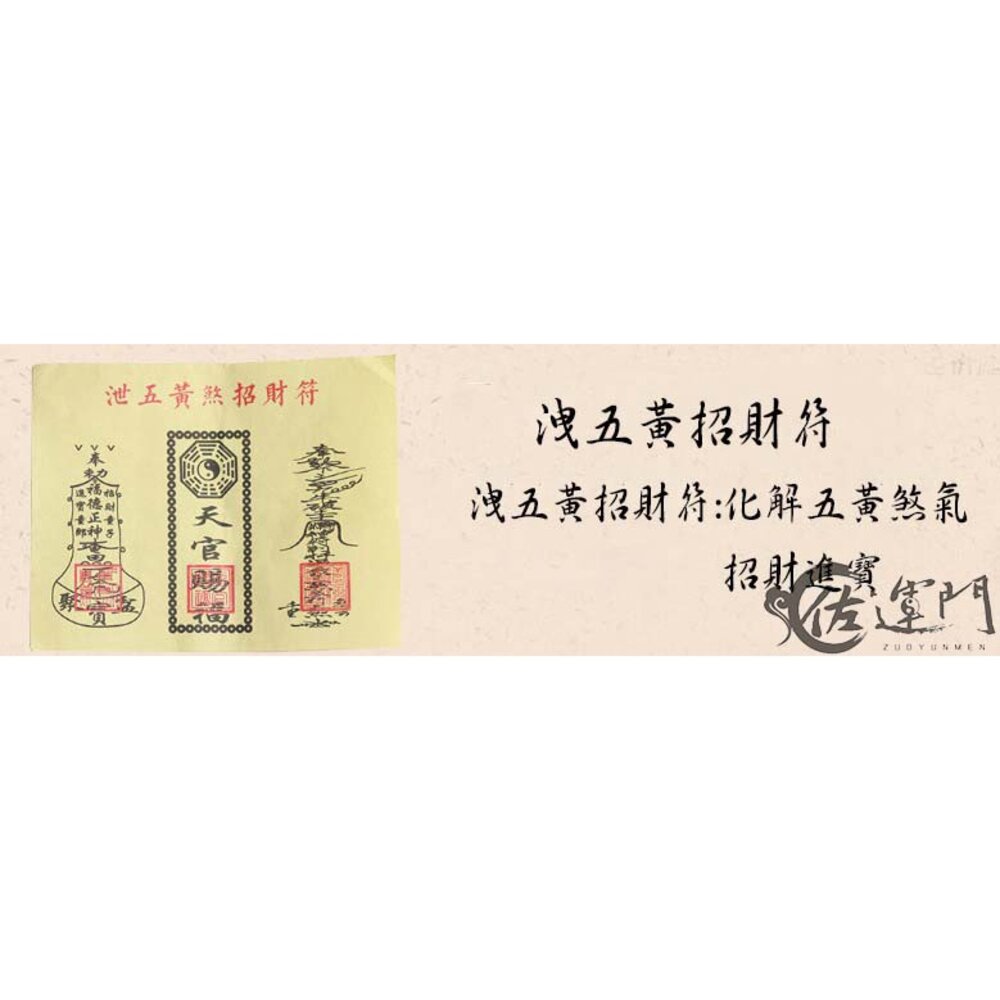 泄五黃煞招財符
奉
勅
福德正神
招財童子
進寶童郎
聚寶盆
天官賜福
洩五黃招財符
洩五黃招財符:化解五黃煞氣
招財進寶
佐運門
ZUOYUNMEN